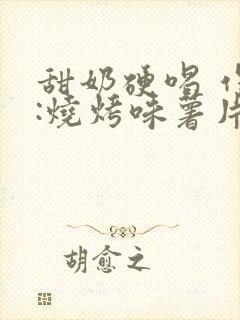 甜奶硬喝
:燒烤味薯片
胡愈之